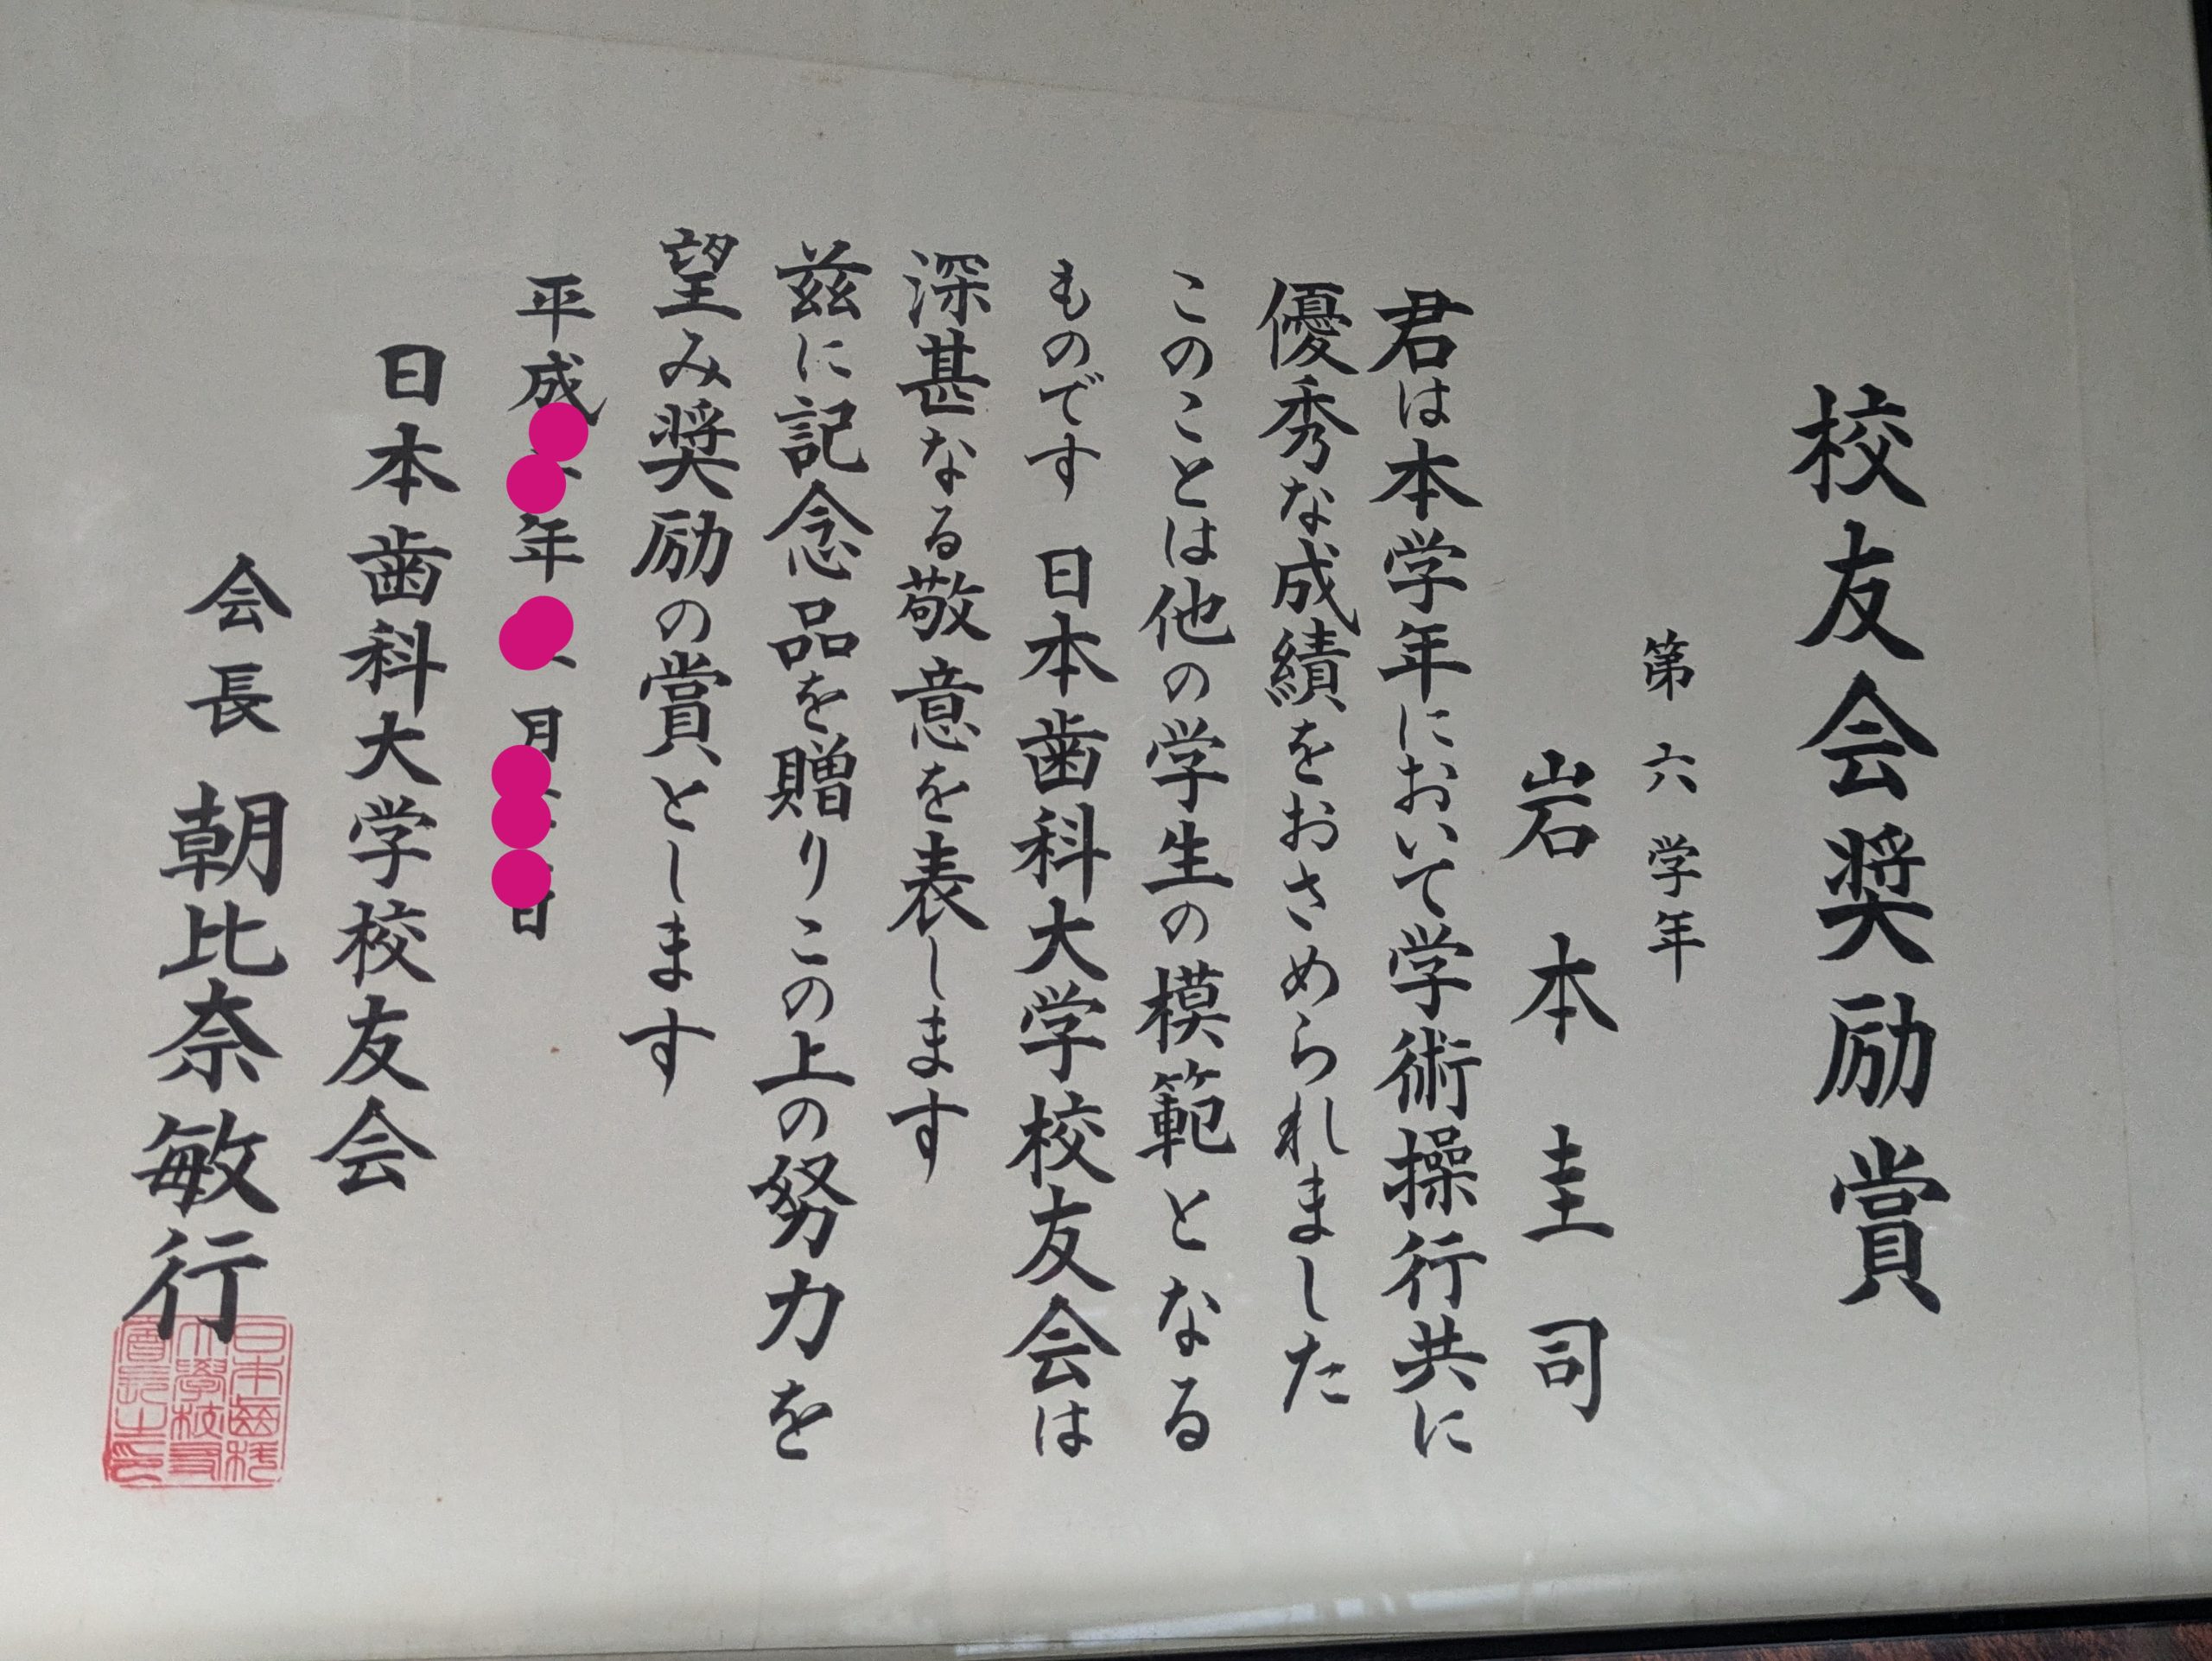 校友会奨励賞
第六学年
岩本圭司
君は本学年において学術操行共に
優秀な成績をおさめられました
このことは他の学生の模範となる
ものです 日本歯科大学校友会は
深甚なる敬意を表します
兹に記念品を贈りこの上の努力を
望み奨励の賞とします
平成 年 月 日
日本歯科大学校友会
会長 朝比奈敏行
日本齒科
大學校友
會長之印